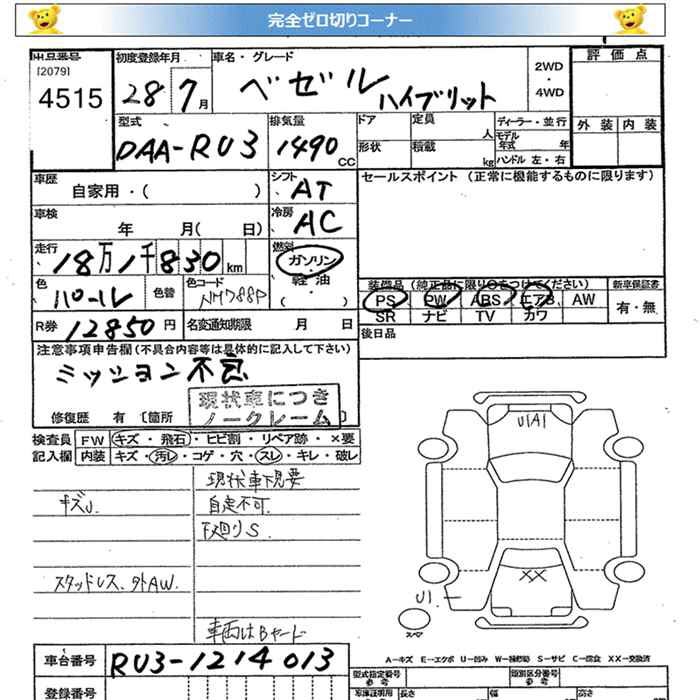 完全ゼロ切りコーナー
出品番号 初度登録年月 車名・グレード 評価点
[2079]
4515 28 7月 ベゼル ハイブリット 2WD ・ 4WD
外装 内装
型式 排気量 ドア 定員 人 ディーラー・並行
DAA-RU3 1490 CC 形状 積載 kg モデル年式 年
ハンドル 左・右
車歴 自家用・( ) シフト AT セールスポイント (正常に機能するものに限ります)
車検 年 月( 日) 冷房 AC
走行 18万1千830km 燃料 ガソリン・軽油・( )
装備品(純正品に限り○をつけてください) 新車保証書
色 パール 色替 色コード NM788P PS PW ABS エアB AW 有・無
SR ナビ TV カワ
R券 12850円 名変通知期限 月 日 後日品
注意事項申告欄(不具合内容等は具体的に記入して下さい)
ミッション不良
現状車につき
ノークレーム
修復歴 有 〔箇所
検査員 FW キズ・飛石・ヒビ割・リペア跡・×要
記入欄 内装 キズ・汚レ・コゲ・穴・スレ・キレ・破レ
現状車下見要
キズU. 自走不可.
下廻りS.
スタッドレス、外AW.
車両はBヤード
U1A1
XX
U1.
スペア
A-キズ E-エクボ U-凹み W-補修跡 S-サビ C-腐食 XX-交換済
車台番号 RU3-1214013
型式指定番号 参考 類別区分番号 参考
登録番号 長さ 幅 高さ